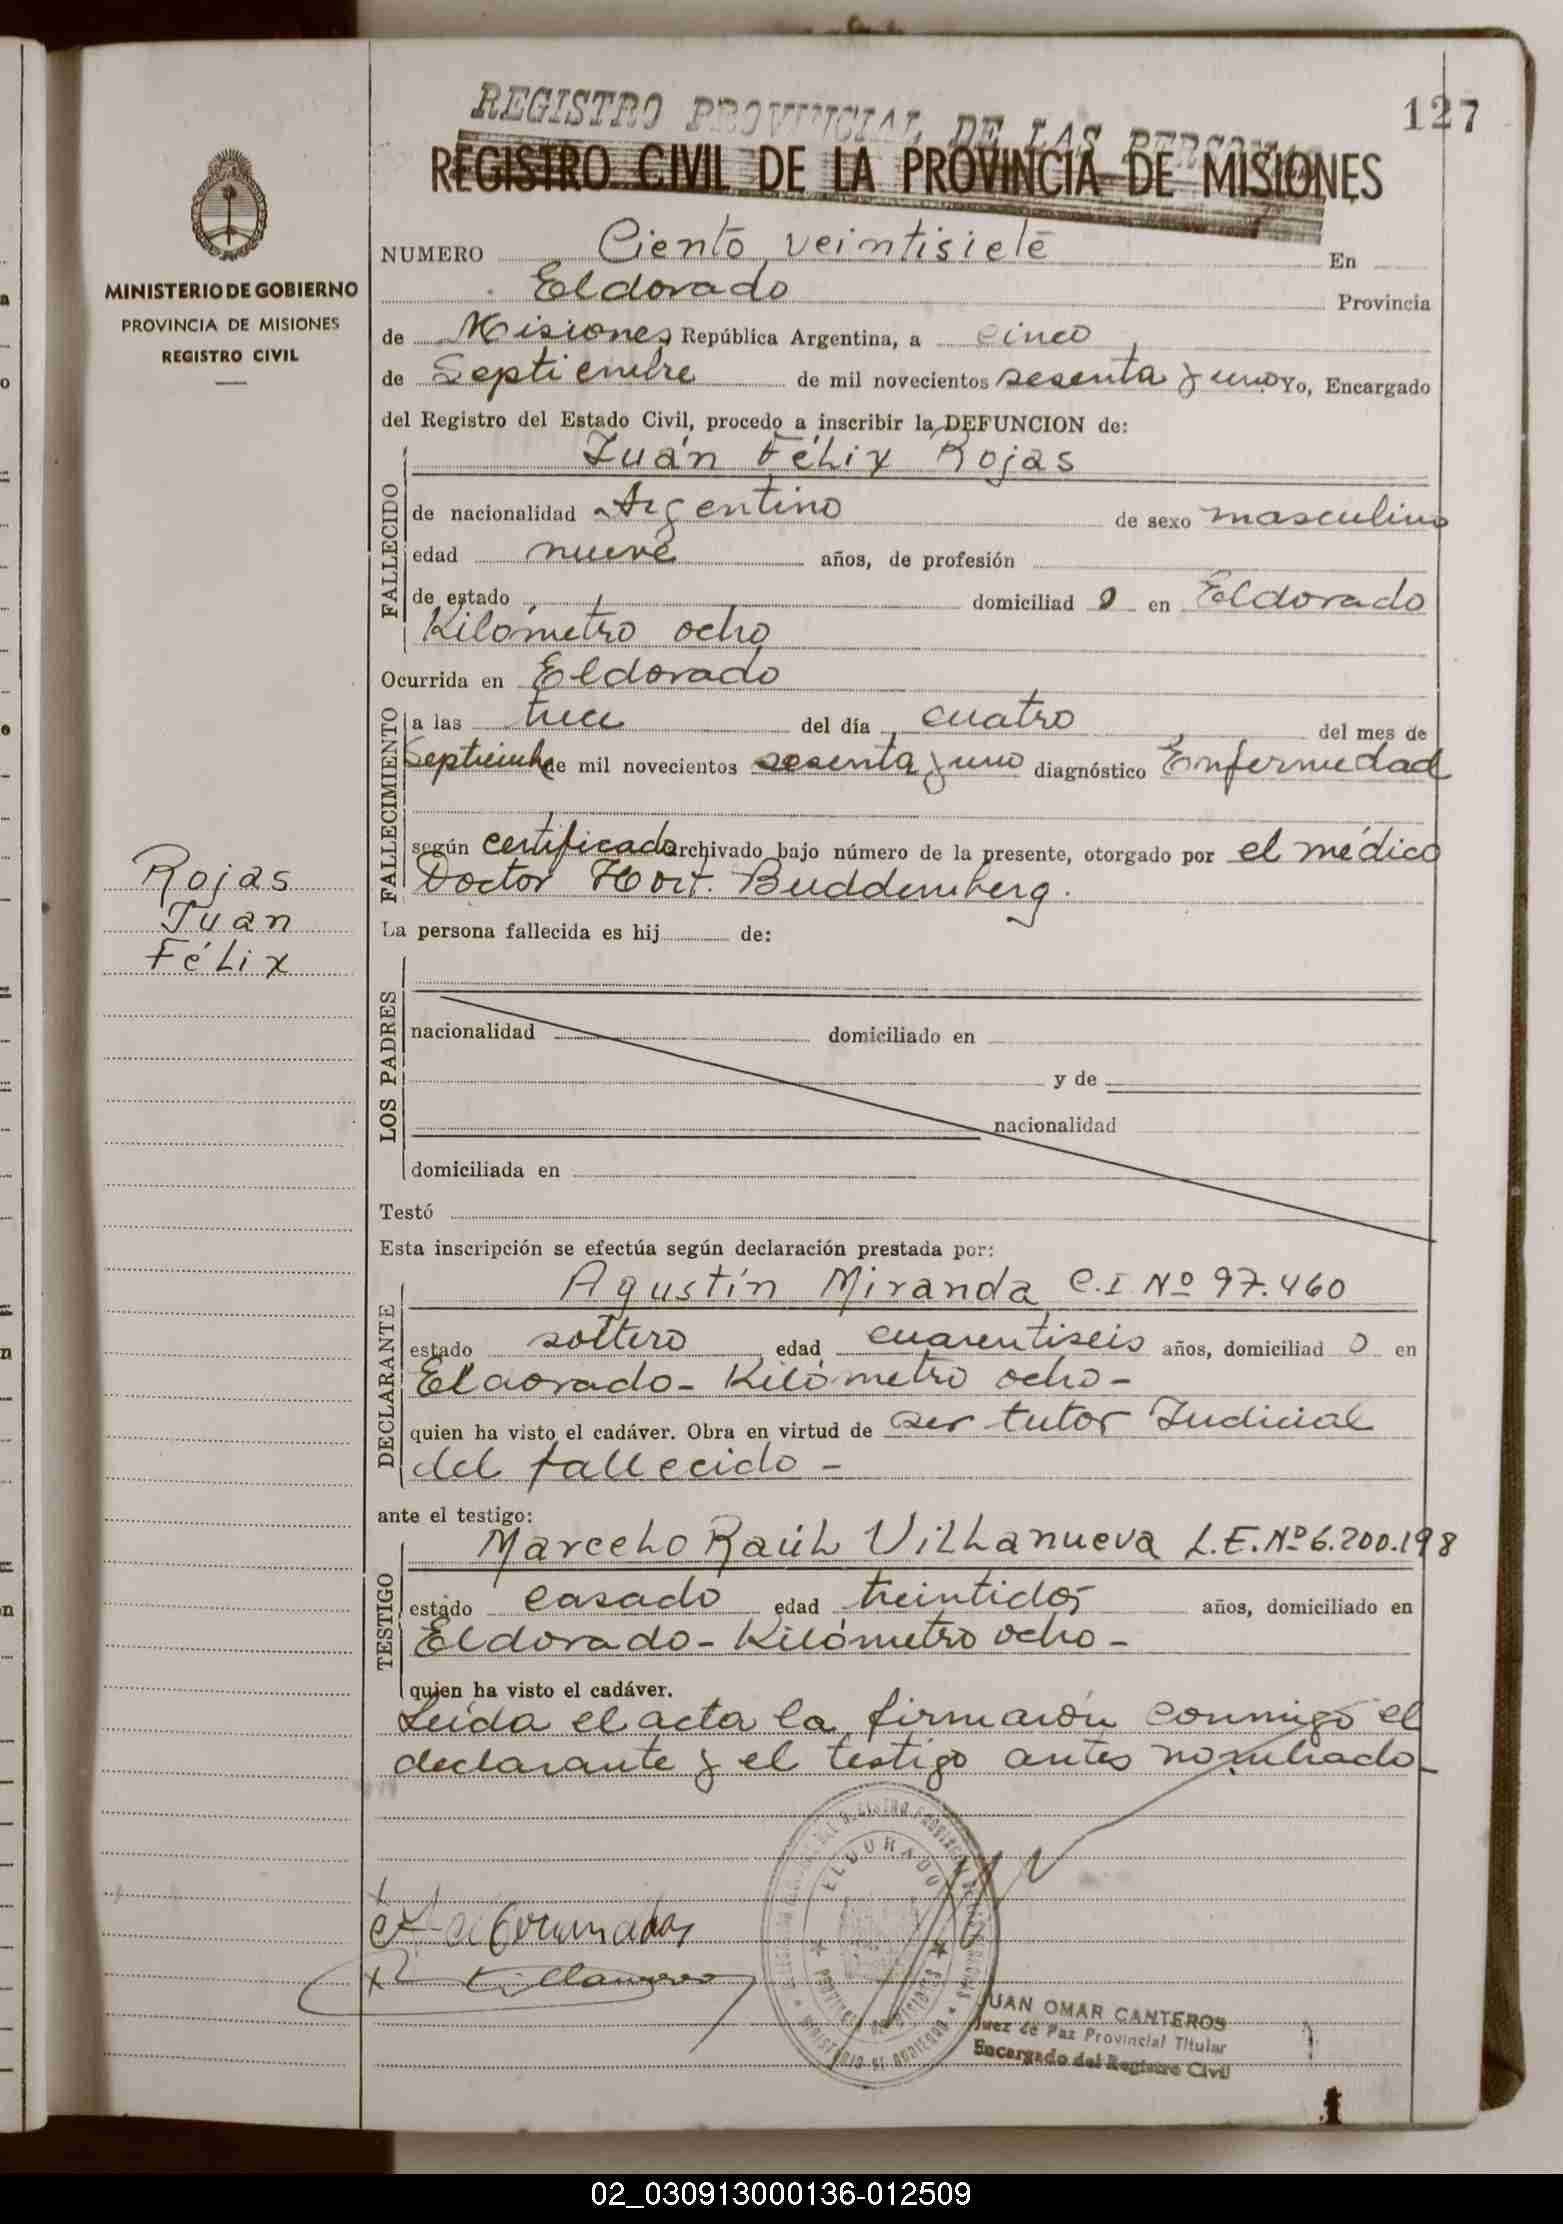 127
REGISTRO PROVINCIAL DE LAS PERSONAS
REGISTRO CIVIL DE LA PROVINCIA DE MISIONES
MINISTERIO DE GOBIERNO
PROVINCIA DE MISIONES
REGISTRO CIVIL
NUMERO Ciento veintisiete En
Eldorado Provincia
de Misiones República Argentina, a cinco
de Septiembre de mil novecientos sesenta y uno Yo, Encargado
del Registro del Estado Civil, procedo a inscribir la DEFUNCION de:
Juán Félix Rojas
FALLECIDO
de nacionalidad Argentino de sexo masculino
edad nueve años, de profesión
de estado domiciliad o en Eldorado
Kilómetro ocho
Ocurrida en Eldorado
FALLECIMIENTO
a las trece del día cuatro del mes de
Septiembre de mil novecientos sesenta y uno diagnóstico Enfermedad
según certificado archivado bajo número de la presente, otorgado por el médico
Doctor Hort. Buddemberg.
Rojas
Juan
Félix
La persona fallecida es hij de:
LOS PADRES
nacionalidad domiciliado en
y de
nacionalidad
domiciliada en
Testó
Esta inscripción se efectúa según declaración prestada por:
DECLARANTE
Agustín Miranda C.I. Nº 97.460
estado soltero edad cuarentiseis años, domiciliad o en
Eldorado - Kilómetro ocho -
quien ha visto el cadáver. Obra en virtud de ser tutor Judicial
del fallecido -
ante el testigo:
TESTIGO
Marcelo Raúl Villanueva L.E. Nº 6.200.198
estado casado edad treintidós años, domiciliado en
Eldorado - Kilómetro ocho -
quien ha visto el cadáver.
Leída el acta la firmarón conmigo el
declarante y el testigo antes nombrado -
ELDORADO
JUAN OMAR CANTEROS
Juez de Paz Provincial Titular
Encargado del Registro Civil
02_030913000136-012509